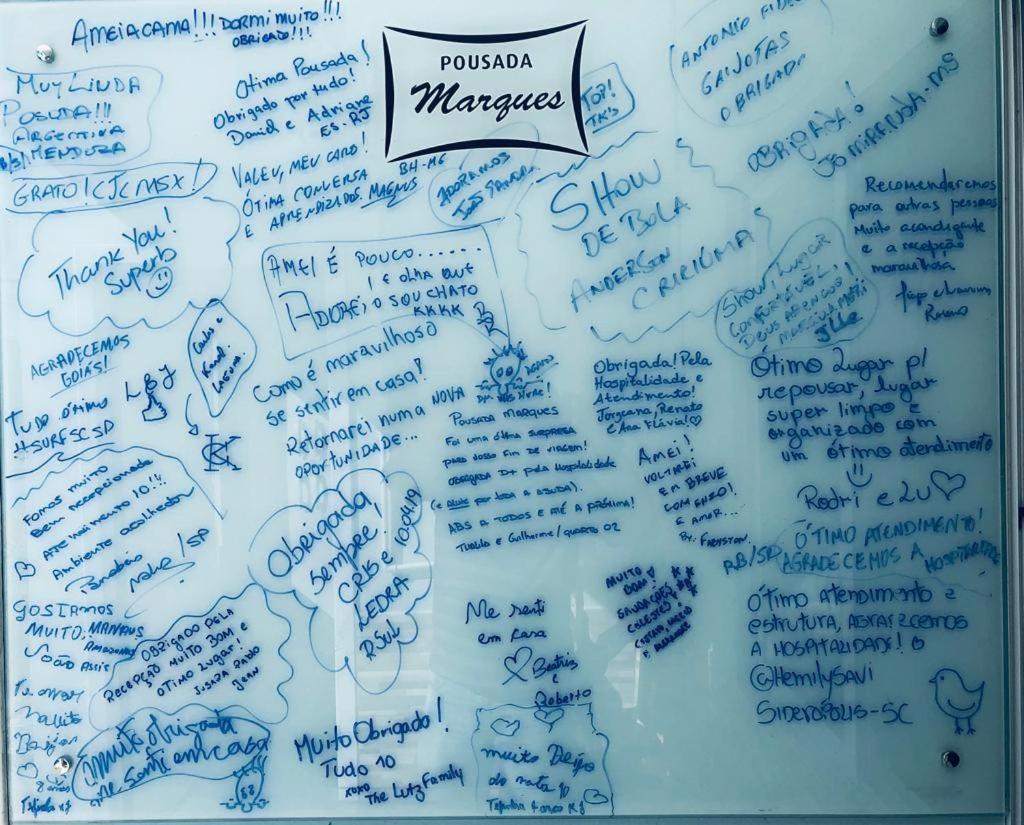 AMEI A CAMA!!! DORMI MUITO!!!
OBRIGADO!!!
POUSADA
Marques
MUY LINDA
POSUDA!!!
ARGENTINA
MENDOZA
GRATO! CJC MSX!
Otima Pousada!
Obrigado por tudo!
Daniel e Adriane
ES-RJ
VALEU, MEU CARO!
ÓTIMA CONVERSA
E APRENDIZADOS. MAGNUS
BH-MG
TOP!
ADORAMOS
ANTONIO
GAIVOTAS
OBRIGADO
OBRIGADA!
JÔ MIRANDA-MS
Thank You!
Superb
SHOW
DE BOLA
ANDERSON
CRICIÚMA
Recomendaremos
para outras pessoas
Muito aconchegante
e a recepção
maravilhosa
AMEI É POUCO......
! E OLHA QUE
ADOREI, O SOU CHATO
KKKK
Show! Lugar
CONFORTÁVEL,
DEUS ABENÇOE!
Jlle
AGRADECEMOS
GOIÁS!
Carlos e
Laguna.
L J
TUDO ótimo
#SURFSCSP
K
Como é maravilhoso
se sentir em casa!
Retornarei numa NOVA
OPORTUNIDADE...
POUSADA MARQUES
FOI UMA ótima SURPRESA
PARA NOSSO FIM DE VIAGEM!
OBRIGADA D+ pela Hospitalidade
(e por toda a AJUDA).
ABS A TODOS E ATÉ A PRÓXIMA!
e Guilherme/QUARTO 02
Obrigada! Pela
Hospitalidade e
Atendimento!
Jorgeana, Renato
e Ana Flávia! ♡
AMEI!
VOLTAREI
EM BREVE
COM ENZO!
E AMOR...
Ótimo Lugar p/
repousar, lugar
super limpo e
organizado com
um ótimo atendimento
Rodri e Lu ♡
Fomos muito
bem recepcionados
Atendimento 10!!
Ambiente acolhedor
/SP
Obrigada
sempre!
CRIS e 10.04.19
LEDRA
RSUL
ÓTIMO ATENDIMENTO!
RB/SP AGRADECEMOS A HOSPITALIDADE
GOSTAMOS
MUITO, MANAUS
AMAZONAS
João Assis
OBRIGADO PELA
RECEPÇÃO MUITO BOM e
OTIMO LUGAR!
JUSARA PABLO
JEAN
Me senti
em casa
♡ Beatriz
e
Roberto
MUITO
BOM!
SAUDAÇÕES
CELESTES!
ÓTIMO ATENDIMENTO E
ESTRUTURA, AGRADECEMOS
A HOSPITALIDADE!
@HemilySavi
SIDERÓPOLIS-SC
muito obrigada
me senti em casa
Muito Obrigado!
Tudo 10
xoxo
The Lutz Family
muito Beijo
de nota 10